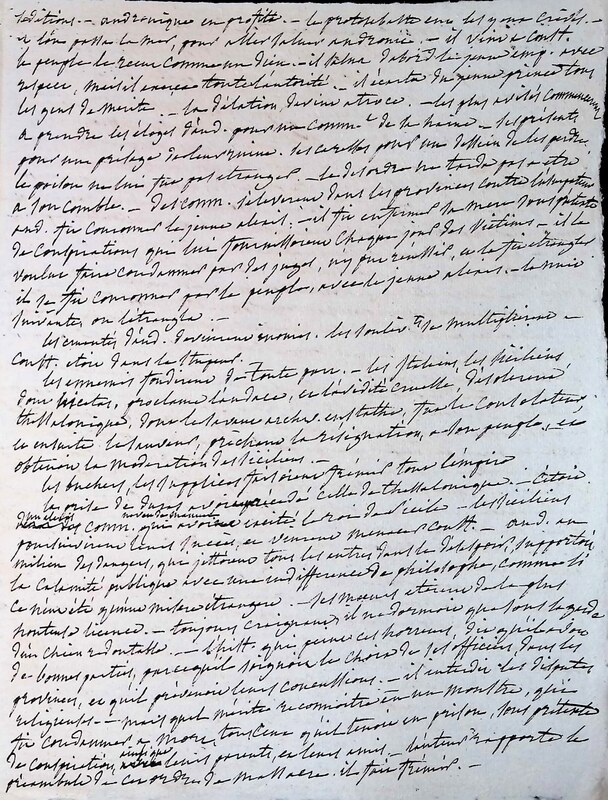 séditions. — andronique en profita. — le protosebaste eut les yeux crévés. —
et l'on passa la mer, pour aller saluer andronic. — il vint à Const.
le peuple le reçut comme un dieu. — il traita d'abord le jeune emp. avec
respect, mais il exerça toute l'autorité. — il écarta du jeune prince tous
les gens de mérite. — la délation devint atroce. — les plus avisés commencèrent
à prendre les éloges d'and. pour un comm.t de sa haine. — ses présents
pour un présage de leur ruine. ses caresses pour un dessein de les perdre.
le poison ne lui fut pas étranger. — le désordre ne tarda pas à être
à son comble. — des comm. s'élevèrent dans les provinces contre l'usurpateur
and. fit couronner le jeune alexis. — il fit enfermer sa mère sous prétexte
de conspirations qui lui fournissoient chaque jour des victimes. — il la
voulut faire condamner par des juges, n'y put réussir, et la fit étrangler
il se fit couronner par le peuple, avec le jeune alexis. — la nuit
suivante, on l'étrangla. —
les cruautés d'and. devinrent inouies. les soulev.ts se multiplièrent —
Const. étoit dans la stupeur.
les ennemis fondirent de toute part. — les italiens, les siciliens
dont Nicetas, proclame l'audace, et l'avidité cruelle, désolèrent
thessalonique, dont le savant archev. eustathe, fut le consolateur
et ensuite le sauveur, prêchant la résignation, à son peuple, et
obtenant la modération des siciliens. —
les buchers, les supplices faisoient frémir tout l'empire
la prise de duras avoit précédé celle de thessalonique. — C'étoit
un des comm. qui avoient excité le roi de Sicile — les siciliens
poursuivirent leurs succès, et vinrent menacer Const. — and. au
milieu des dangers, qui jettoient tous les autres dans le désespoir, supportoit
la calamité publique avec une indifférence de philosophe, comme si
ce n'eut été qu'une misère étrangère. — ses mœurs étoient de la plus
honteuse licence. — toujours craignant, il ne dormoit que sous la garde
d'un chien redoutable. — l'hist. qui peint ces horreurs, dit qu'il a eu
de bonnes parties, parce qu'il soignoit le choix de ses officiers, dans les
provinces, et qu'il prévenoit leurs concussions. — il interdit les disputes
religieuses. — mais quel mérite reconnoitre en un monstre, qui
fit condamner à mort, tous ceux qu'il tenoit en prison, sous prétexte
de conspiration, ainsi que leurs parents, et leurs amis. — l'auteur rapporte le
préambule de cet ordre de massacre. il fait frémir. —